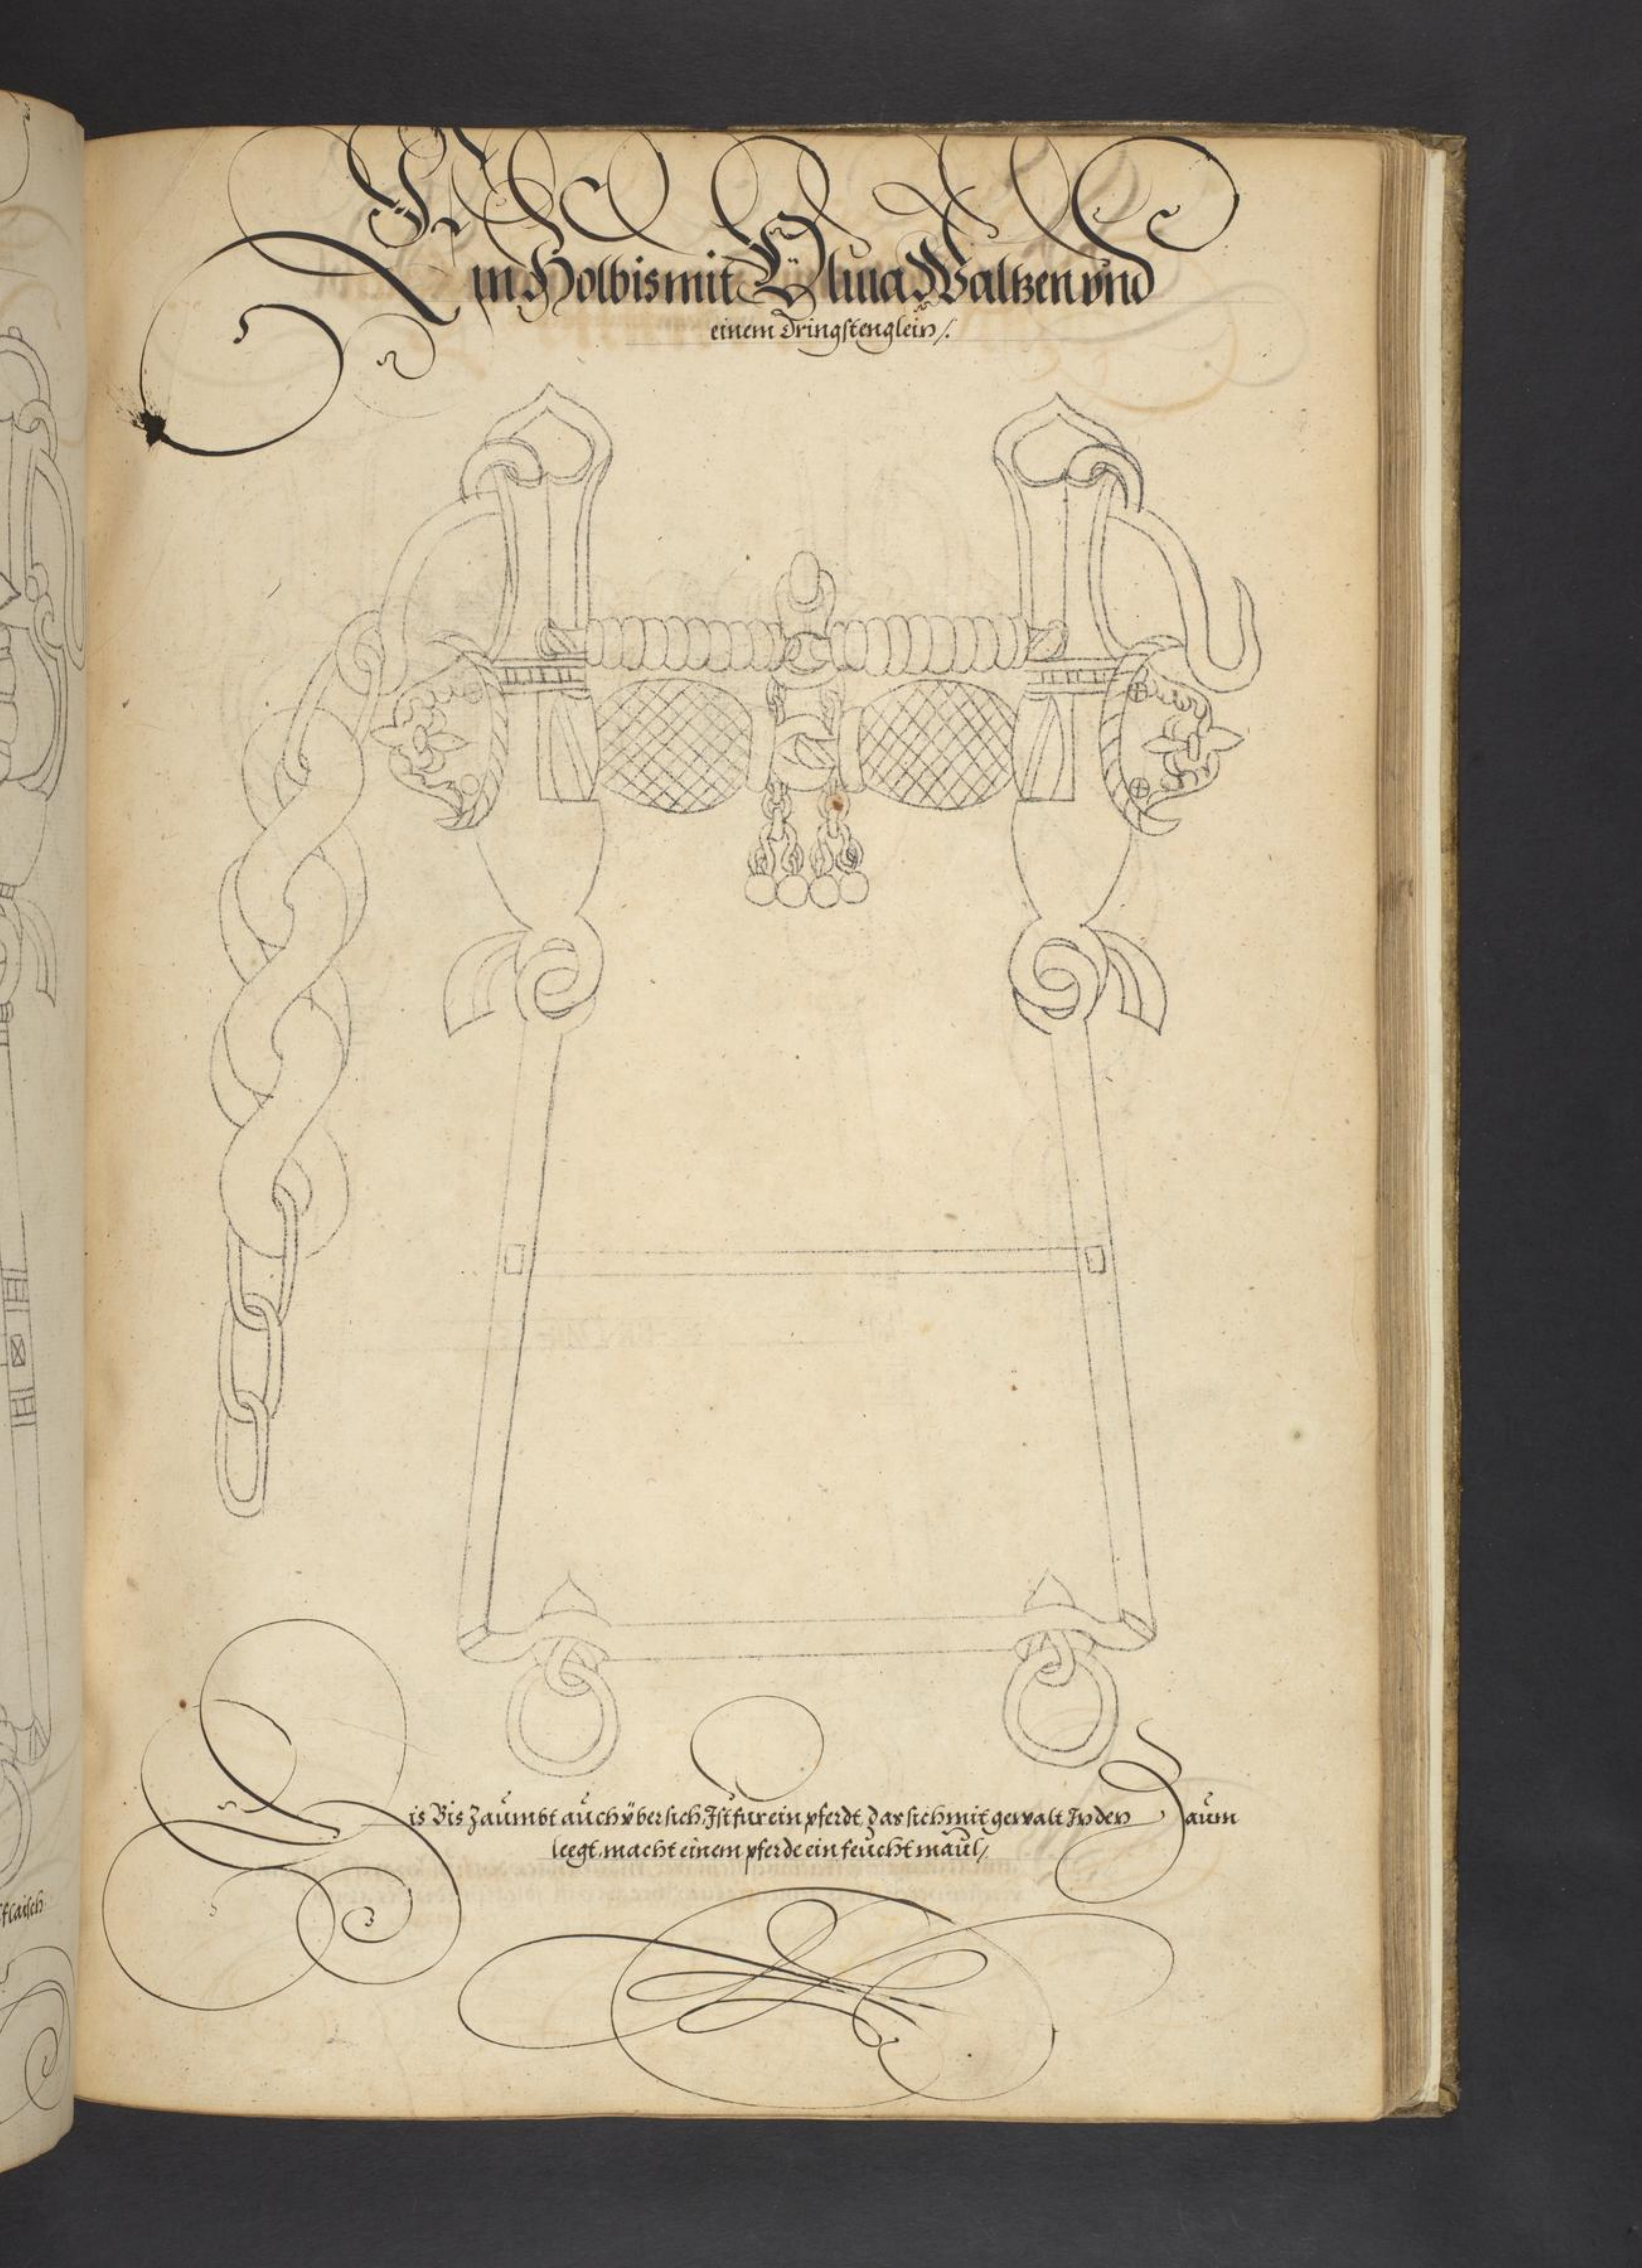 Ein Holbis mit Oliua Waltzen vnd
einem Dringstenglein /.
Dis Bis Zaumbt auch vbersich, Ist fur ein pferdt, Das sich mit gewalt In den Zaum
leegt, macht einem pferde ein feucht maul /
flaisch